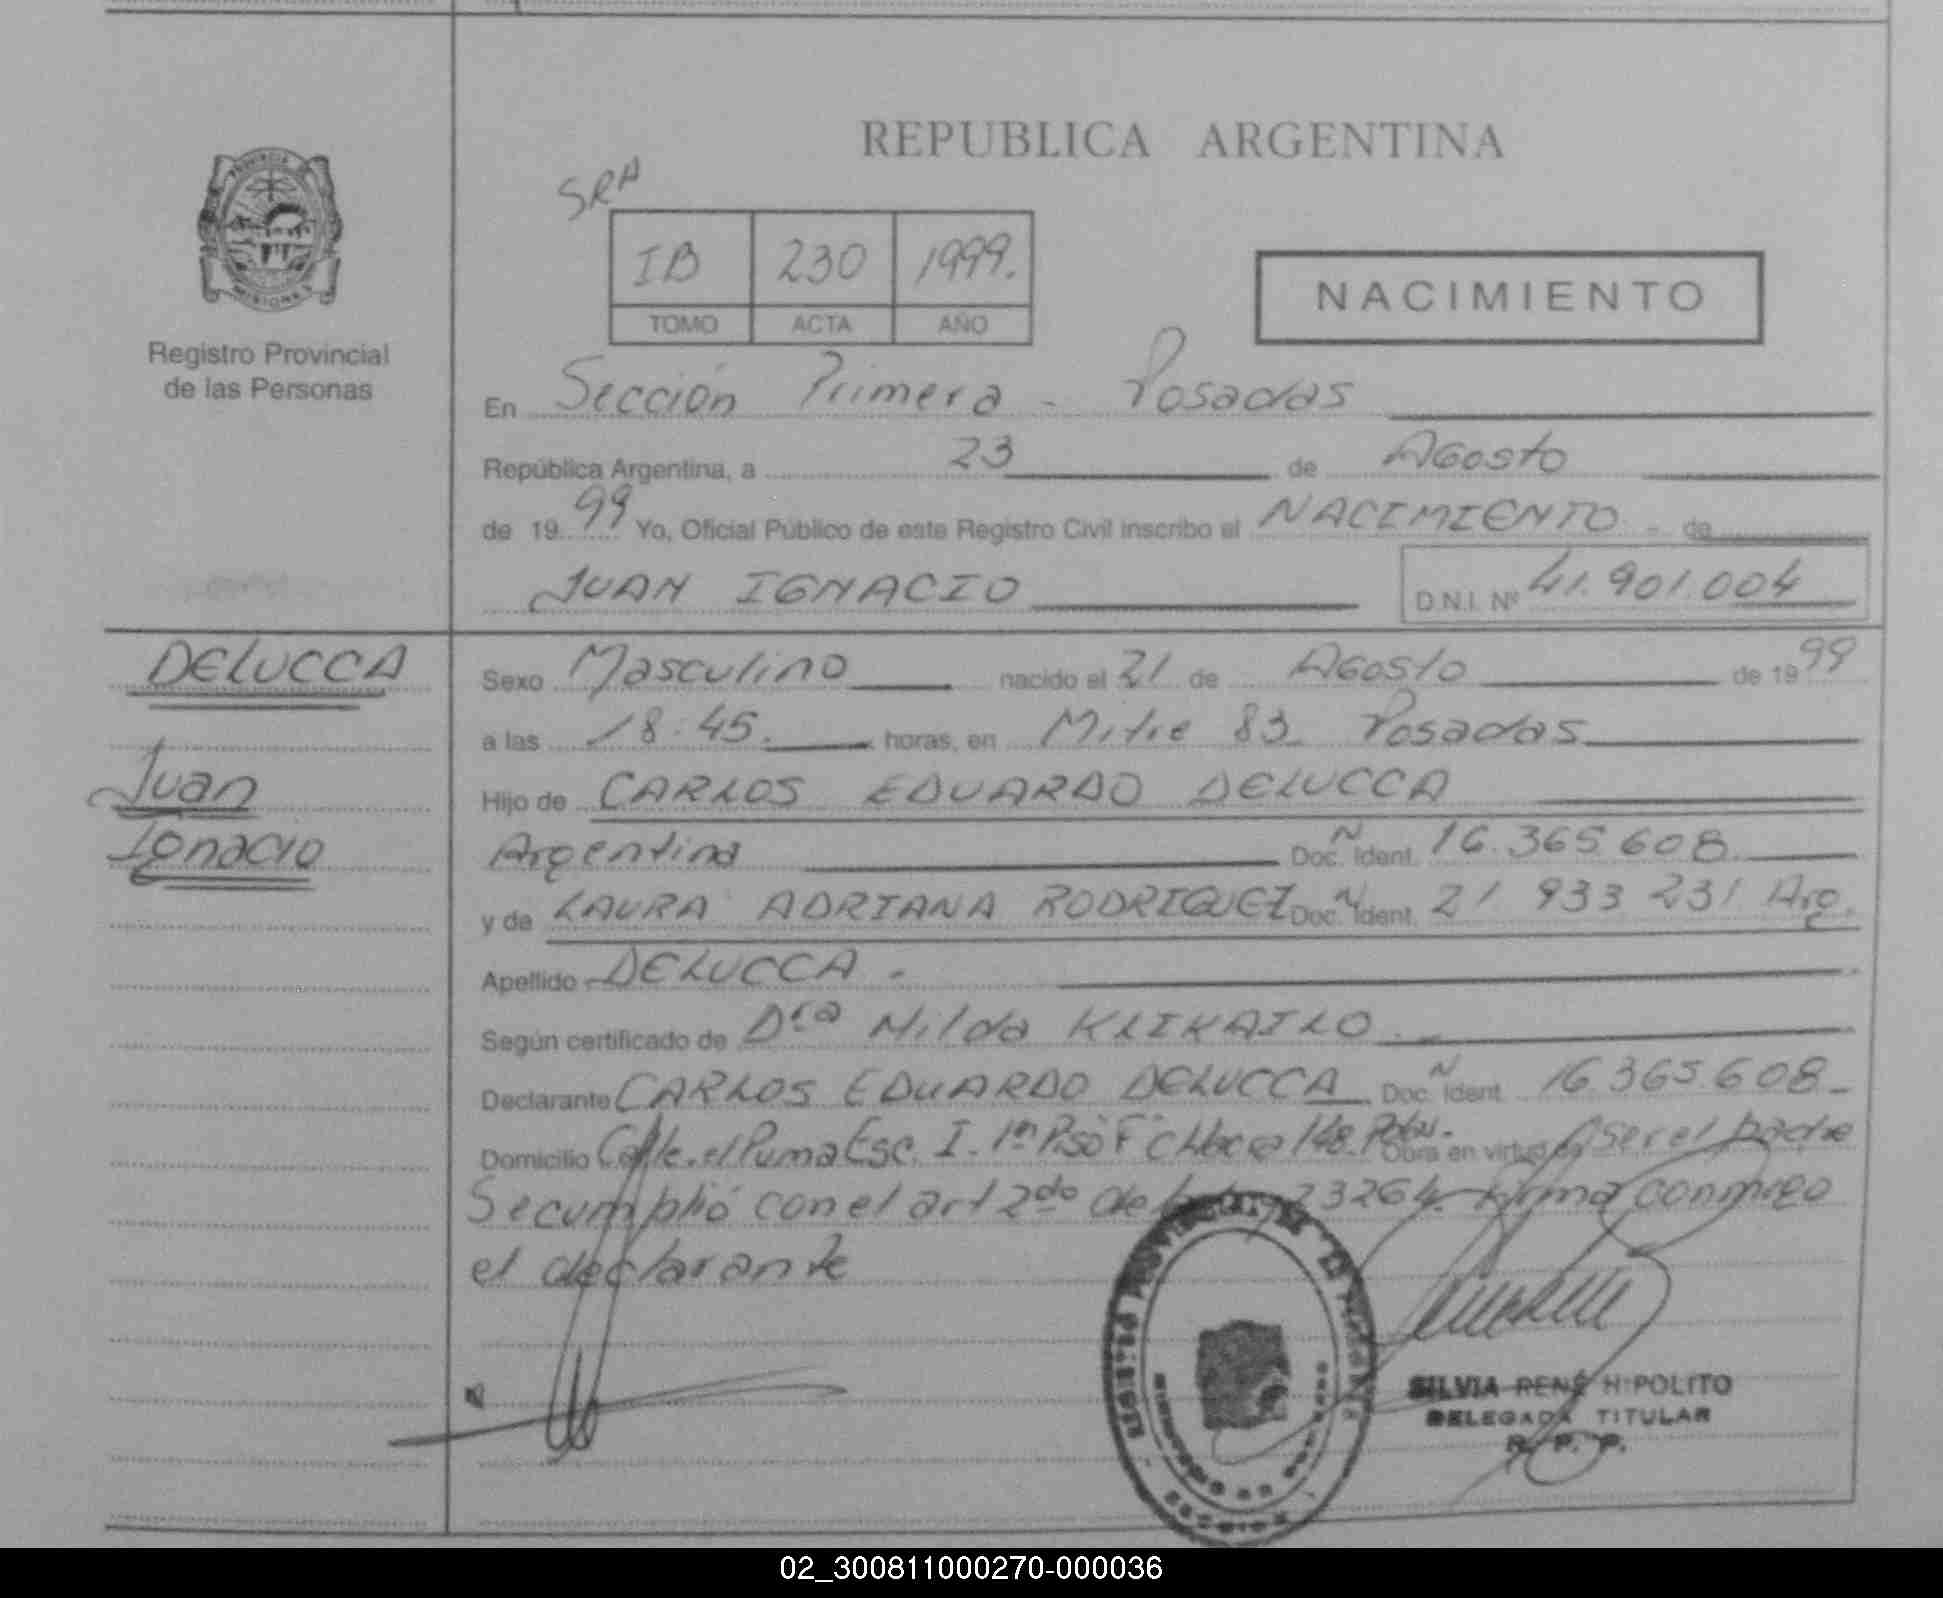 REPUBLICA ARGENTINA
PROVINCIA
MISIONES
Registro Provincial
de las Personas
SRA
IB 230 1999.
TOMO ACTA AÑO
NACIMIENTO
En Sección Primera - Posadas
República Argentina, a 23 de Agosto
de 1999 Yo, Oficial Público de este Registro Civil inscribo el NACIMIENTO - de
JUAN IGNACIO D.N.I. Nº 41.901.004
DELUCCA
Juan
Ignacio
Sexo Masculino nacido el 21 de Agosto de 1999
a las 18:45. horas, en Mitre 83 Posadas
Hijo de CARLOS EDUARDO DELUCCA
Argentina Doc. N Ident. 16.365.608
y de LAURA ADRIANA RODRIGUEZ Doc. N Ident. 21 933 231 Arg.
Apellido DELUCCA.
Según certificado de Dra Nilda KLIKAILO
Declarante CARLOS EDUARDO DELUCCA Doc. N Ident. 16.365.608
Domicilio Calle el Puma Esc. I. 1er Piso F Obra en virtud de Ser el padre
Se cumplió con el art 2do de 23264. Firma conmigo
el declarante
SILVIA RENÉ HIPOLITO
DELEGADA TITULAR
R. P. P.
02_300811000270-000036